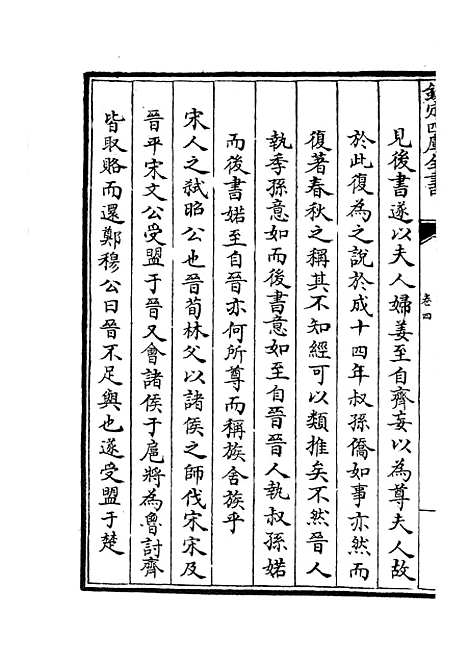 欽定四庫全書
卷四
見後書遂以夫人婦姜至自齊妄以為尊夫人故
於此復為之說於成十四年叔孫僑如事亦然而
復著春秋之稱其不知經可以類推矣不然晉人
執季孫意如而後書意如至自晉晉人執叔孫婼
而後書婼至自晉亦何所尊而稱族舍族乎
宋人之弒昭公也晉荀林父以諸侯之師伐宋宋及
晉平宋文公受盟于晉又會諸侯于扈將為魯討齊
皆取賂而還鄭穆公曰晉不足與也遂受盟于楚